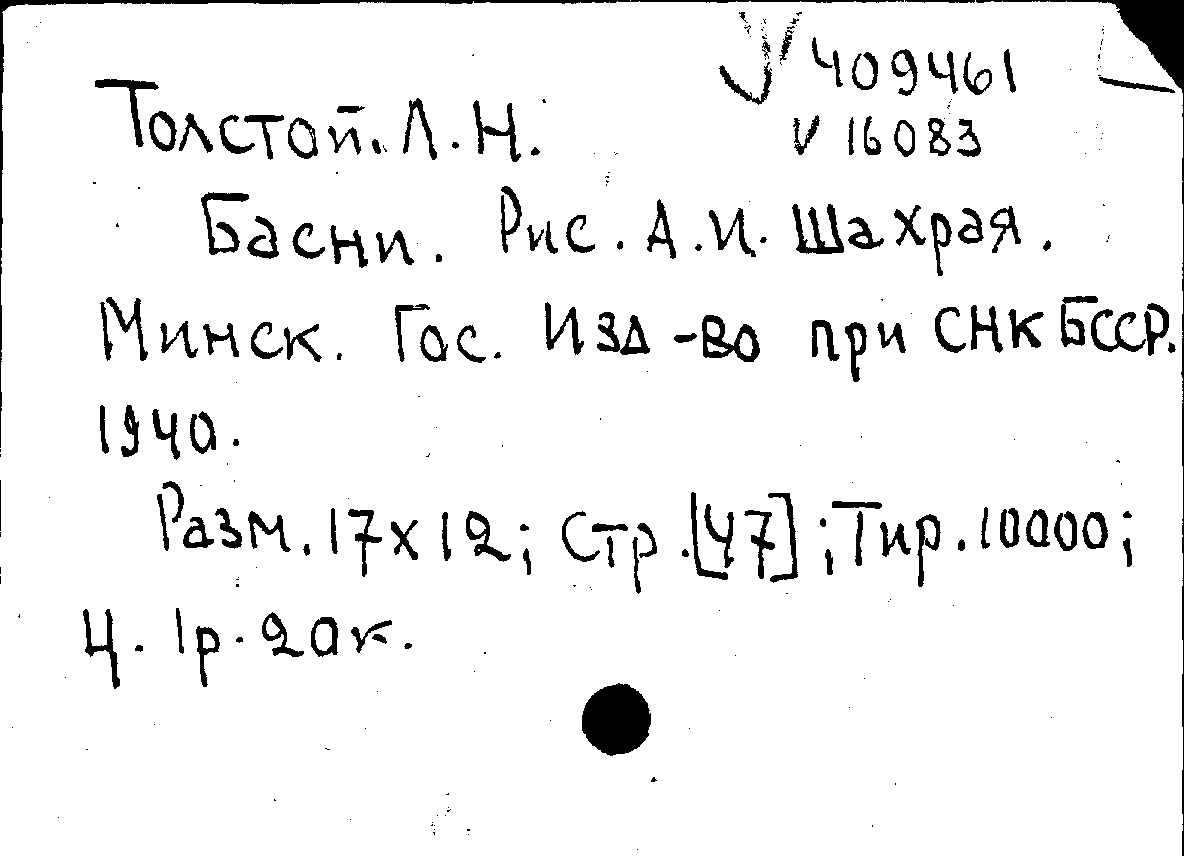 V 409461
Толстой. Л. Н.
V 16083
Басни. Рис. А. И. Шахрая.
Минск. Гос. Изд-во при СНК БССР.
1940.
Разм. 17x12; Стр. [47]; Тир. 10000;
Ц. 1р. 20к.